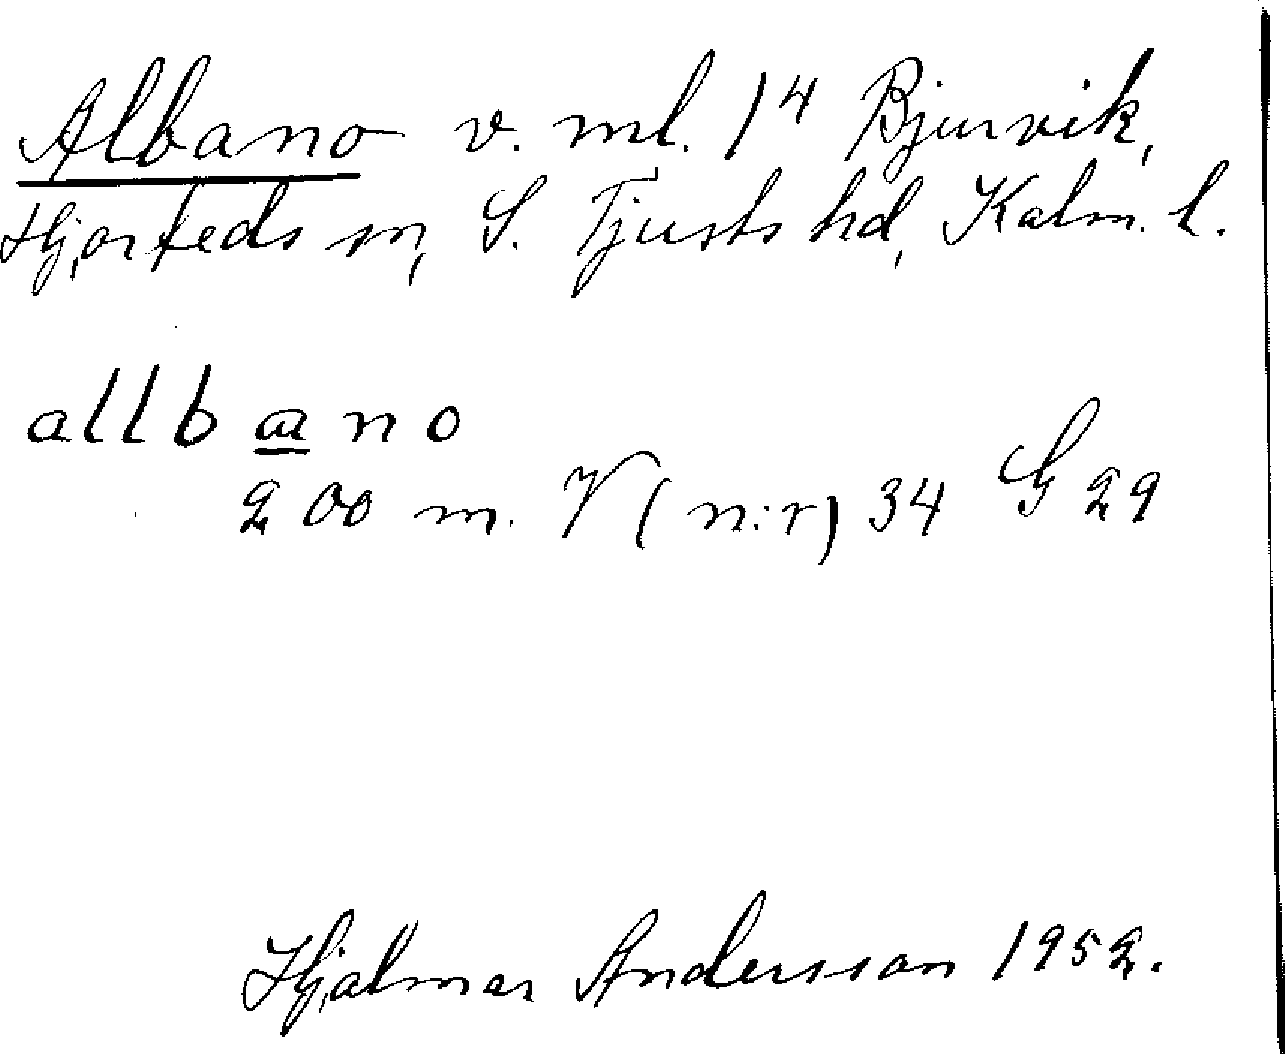 Albano v. ml. 1⁴ Bjurvik,
Hjorteds sn, S. Tjusts hd, Kalm. l.
allbano
200 m. V (n:r) 34 G 29
Hjalmar Andersson 1952.